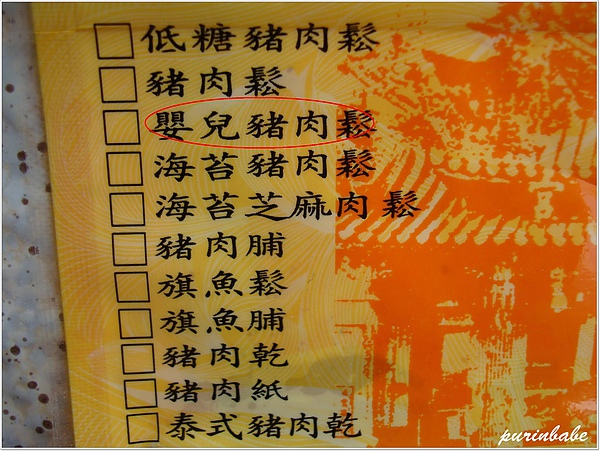 □低糖豬肉鬆
□豬肉鬆
□嬰兒豬肉鬆
□海苔豬肉鬆
□海苔芝麻肉鬆
□豬肉脯
□旗魚鬆
□旗魚脯
□豬肉乾
□豬肉紙
□泰式豬肉乾
purinbabe